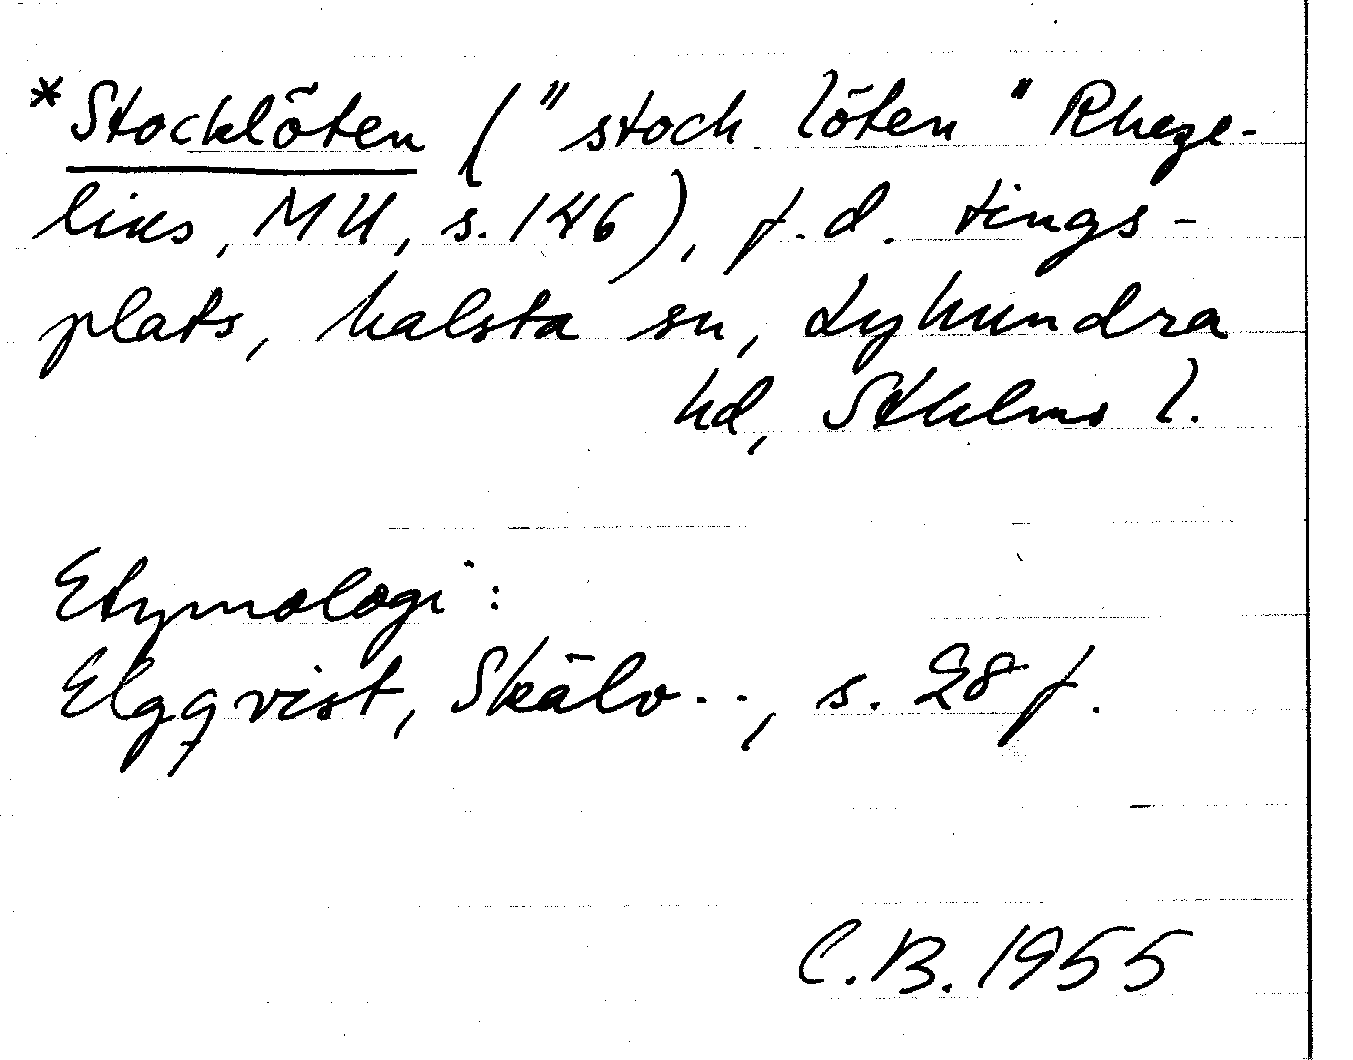 *Stocklöten ("stock löten" Rheze-
lius, MU, s. 146), f.d. tings-
plats, Malsta sn, Lyhundra
hd, Sthlms l.
Etymologi:
Elgqvist, Skälv.., s. 28 f.
C.B. 1955